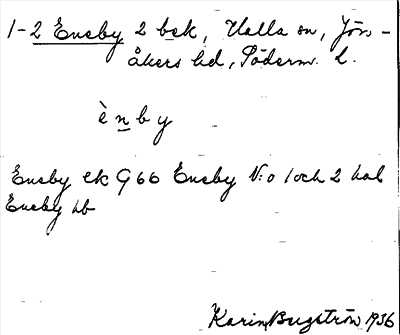 1-2 Eneby 2 bsk, Halla sn, Jön-
åkers hd, Söderm. L.
è n b y
Eneby ek G66 Eneby N:o 1 och 2 hal
Eneby hb
Karin Bergström 1936